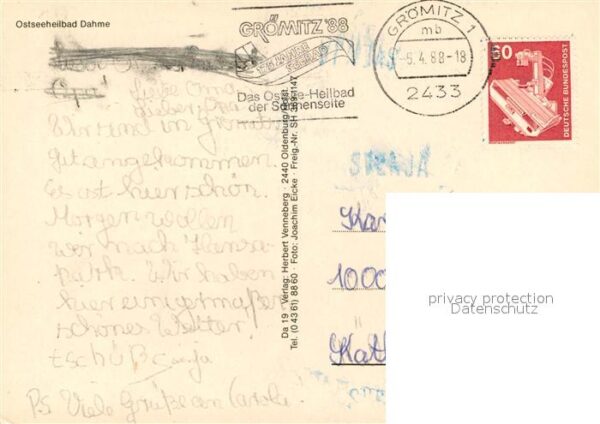 Ostseeheilbad Dahme
Opa!
Liebe Oma
lieber Opa
Wir sind in Grömitz
gut angekommen.
Es ist hier schön.
Morgen wollen
wir nach Hansa-
park. Wir haben
hier einigermaßen
schönes Wetter!
tschüß
PS Viele Grüße an
GRÖMITZ '88
Das Ostsee-Heilbad
der Sonnenseite
GRÖMITZ 1
mb
-5.4.88-18
2433
60
DEUTSCHE BUNDESPOST
Da 19 · Verlag: Herbert Venneberg · 2440 Oldenburg/Holst.
Tel. (0 43 61) 88 60 · Foto: Joachim Eicke · Freig.-Nr. SH
1000
privacy protection
Datenschutz